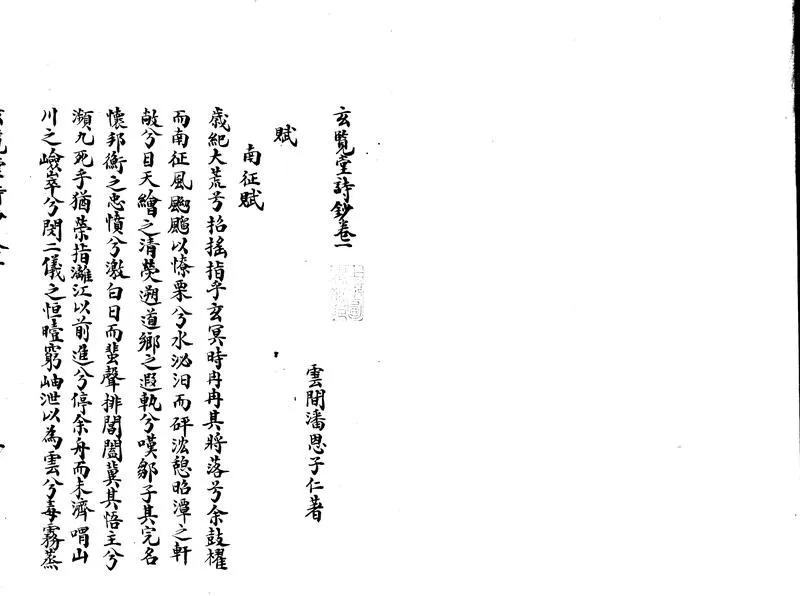 玄覽堂詩鈔卷一
雲間潘恩子仁著
賦
南征賦
歲紀大荒兮招搖指乎玄冥時冉冉其將落兮余鼓櫂
而南征風颲颲以憭栗兮水泌汨而砰浤憩昭潭之軒
敞兮目天繪之清熒遡道鄉之遐軌兮嘆鄒子其完名
懷邦衡之忠憤兮激白日而蜚聲排閶闔冀其悟主兮
瀕九死乎猶榮指灕江以前進兮停余舟而未濟喟山
川之嶮崒兮閔二儀之恒曀窮岫泄以為雲兮毒霧蒸